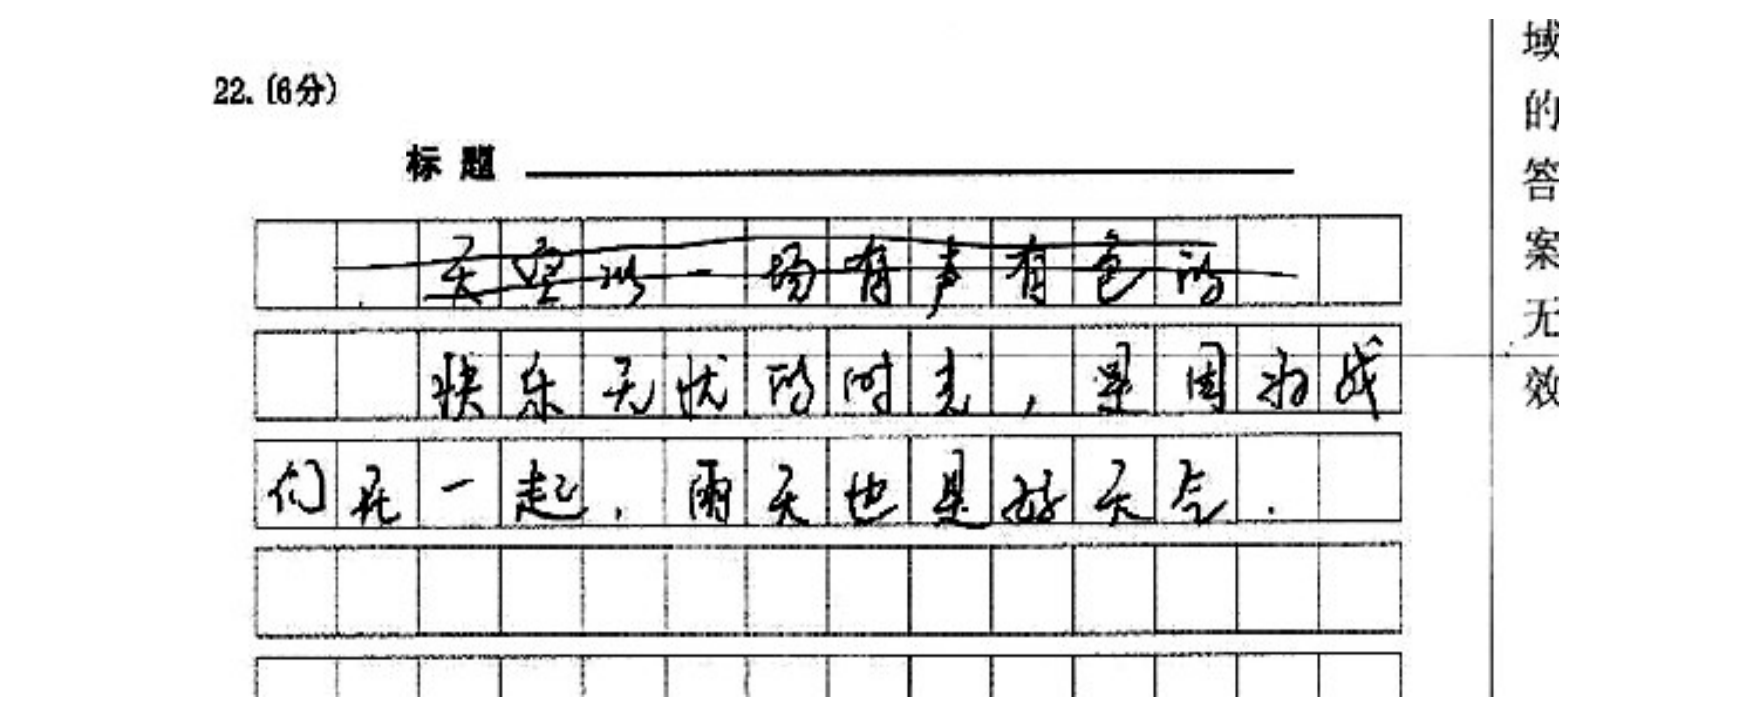 22.(6分)
标题
天空以一场有声有色的
快乐无忧的时光,是因为我
们在一起.雨天也是好天气.
域的答案无效